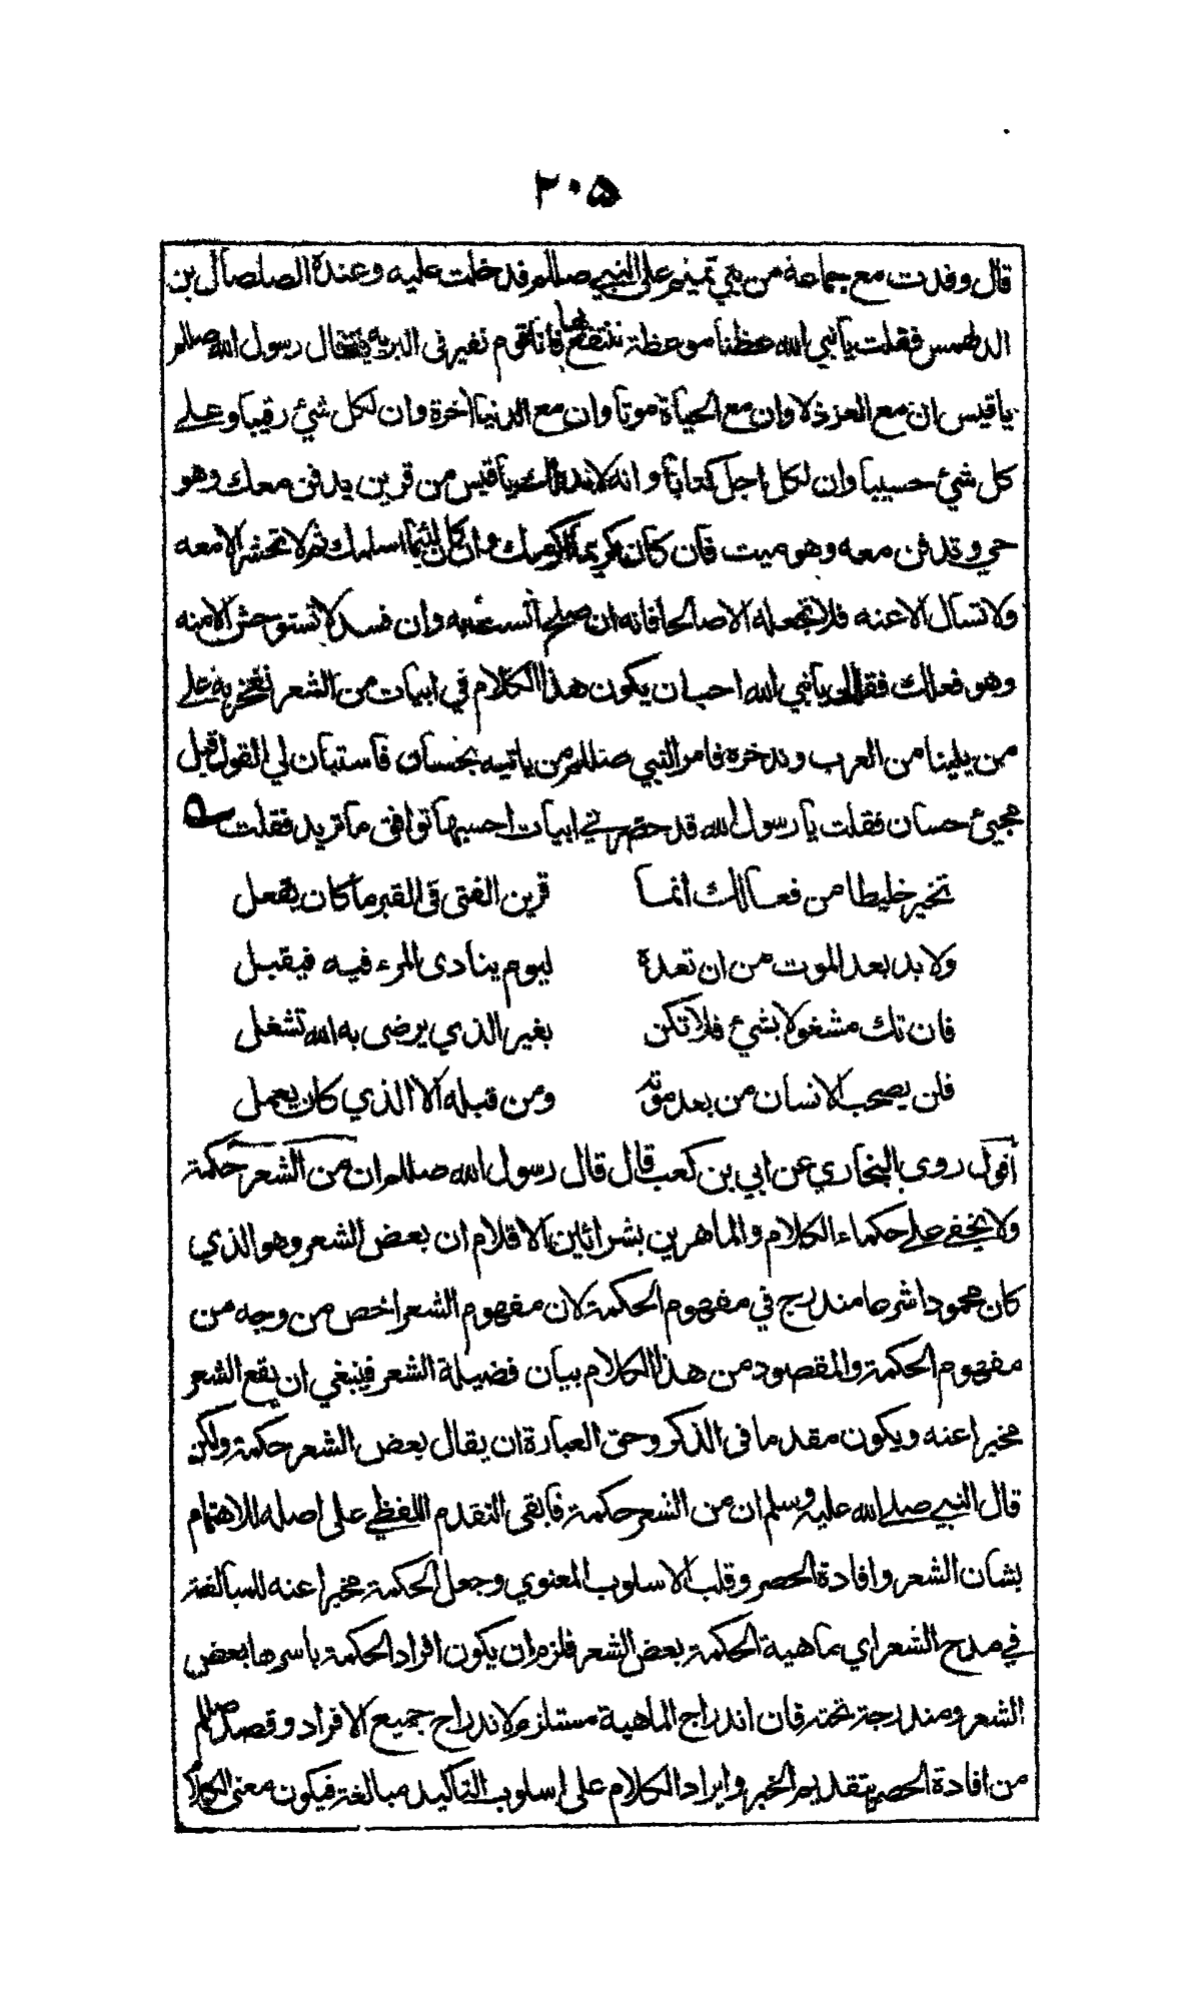 ٢٠٥
قال وفدت مع جماعة من بني تميم على النبي صللم فدخلت عليه وعنده الصلصال بن
الدلهمس فقلت يا نبي الله عظنا موعظة ننتفع بها فانا قوم نغير في البرية فقال رسول الله صللم
يا قيس ان مع العز ذلا وان مع الحياة موتا وان مع الدنيا اخرة وان لكل شئ رقيبا وعلى
كل شئ حسيبا وان لكل اجل كتابا وانه لا بد لك يا قيس من قرين يدفن معك وهو
حي وتدفن معه وهو ميت فان كان كريما اكرمك وان كان لئيما اسلمك ثم لا تحشر الا معه
ولا تسال الا عنه فلا تجعله الا صالحا فانه ان صلح انست به وان فسد لا تستوحش الا منه
وهو فعلك فقال يا نبي الله احب ان يكون هذا الكلام في ابيات من الشعر نفتخر به على
من يلينا من العرب وندخره فامر النبي صللم من ياتيه بحسان فاستبان لي القول قبل
مجيئ حسان فقلت يا رسول الله قد حضرني ابيات احسبها توافق ما تريد فقلت
تخير خليطا من فعالك انما قرين الفتى في القبر ما كان يفعل
ولا بد بعد الموت من ان تعده ليوم ينادى المرء فيه فيقبل
فان تك مشغولا بشئ فلا تكن بغير الذي يرضى به الله تشغل
فلن يصحب الانسان من بعد موته ومن قبله الا الذي كان يعمل
اقول روى البخاري عن ابي بن كعب قال قال رسول الله صللم ان من الشعر حكمة
ولا يخفى على حكماء الكلام والماهرين بشرائين الاقلام ان بعض الشعر وهو الذي
كان محمودا شرعا مندرج في مفهوم الحكمة لان مفهوم الشعر اخص من وجه من
مفهوم الحكمة والمقصود من هذا الكلام بيان فضيلة الشعر فينبغي ان يقع الشعر
مخبرا عنه ويكون مقدما في الذكر وحق العبارة ان يقال بعض الشعر حكمة ولكن
قال النبي صلى الله عليه وسلم ان من الشعر حكمة فابقى التقدم اللفظي على اصله للاهتمام
بشان الشعر وافادة الحصر وقلب الاسلوب المعنوي وجعل الحكمة مخبرا عنه للمبالغة
في مدح الشعر اي ماهية الحكمة بعض الشعر فلزم ان يكون افراد الحكمة باسرها بعض
الشعر ومندرجة تحته فان اندراج الماهية مستلزم لاندراج جميع الافراد وقصد صللم
من افادة الحصر بتقديم الخبر وايراد الكلام على اسلوب التاكيد مبالغة فيكون معنى الكلام